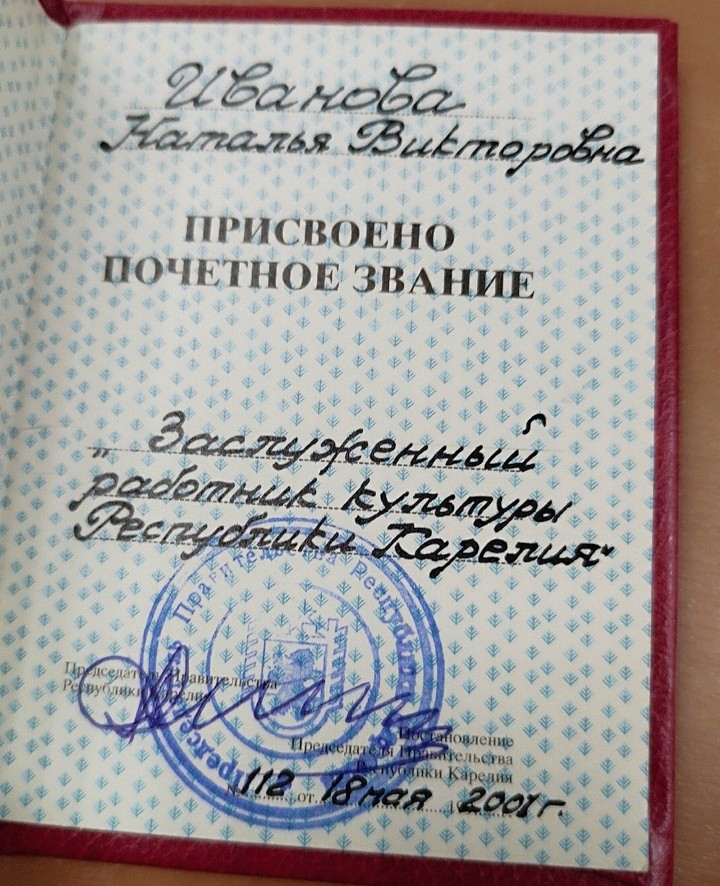 Иванова
Наталья Викторовна
ПРИСВОЕНО
ПОЧЕТНОЕ ЗВАНИЕ
„Заслуженный
работник культуры
Республики Карелия“
Председатель Правительства
Республики Карелия
Председатель Правительства Республики
Постановление
Председателя Правительства
Республики Карелия
№ 112 от 18 мая 2001 г.